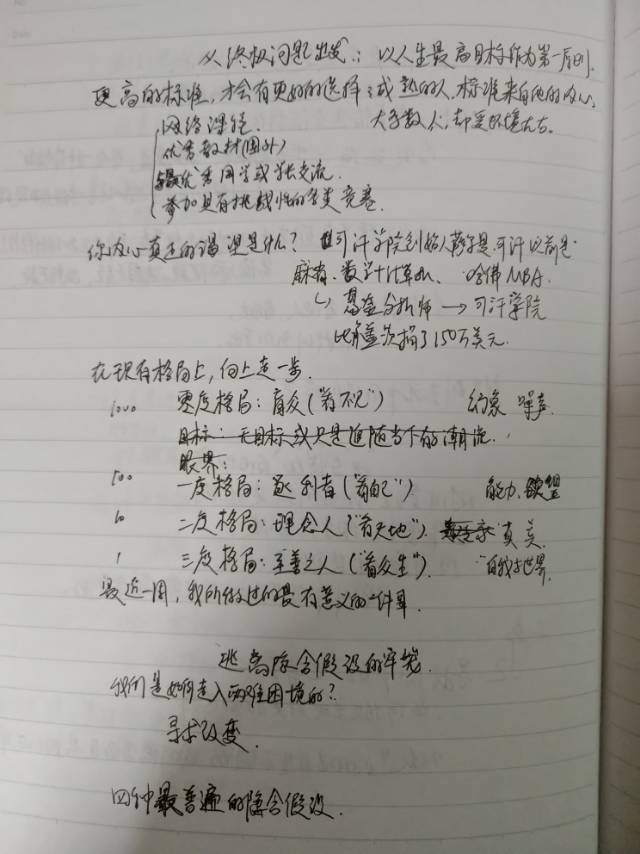 从终极问题出发:以人生最高目标作为第一原则.
更高的标准,才会有更好的选择;成熟的人,标准来自他的内心,
大多数人,却受环境左右.
网络课程.
优秀教材(国外)
优秀同学或学长交流.
参加具有挑战性的各类竞赛.
你内心真正的渴望是什么? 可汗学院创始人萨尔曼·可汗以前是
麻省.数学+计算机、哈佛MBA.
↳ 基金分析师 → 可汗学院
比尔盖茨捐了150万美元.
在现有格局上,向上走一步.
1000 零度格局:盲众("看不见") 幻象 噪声
目标:无目标或只是追随当下的潮流.
眼界:
100 一度格局:逐利者("看自己") 能力、欲望
10 二度格局:理念人("看天地") 真 美
1 三度格局:至善之人("看众生"). 自我与世界
最近一周,我所做过的最有意义的一件事.
逃离隐含假设的牢笼.
我们是如何走入两难困境的?
寻求改变.
四种最普遍的隐含假设.